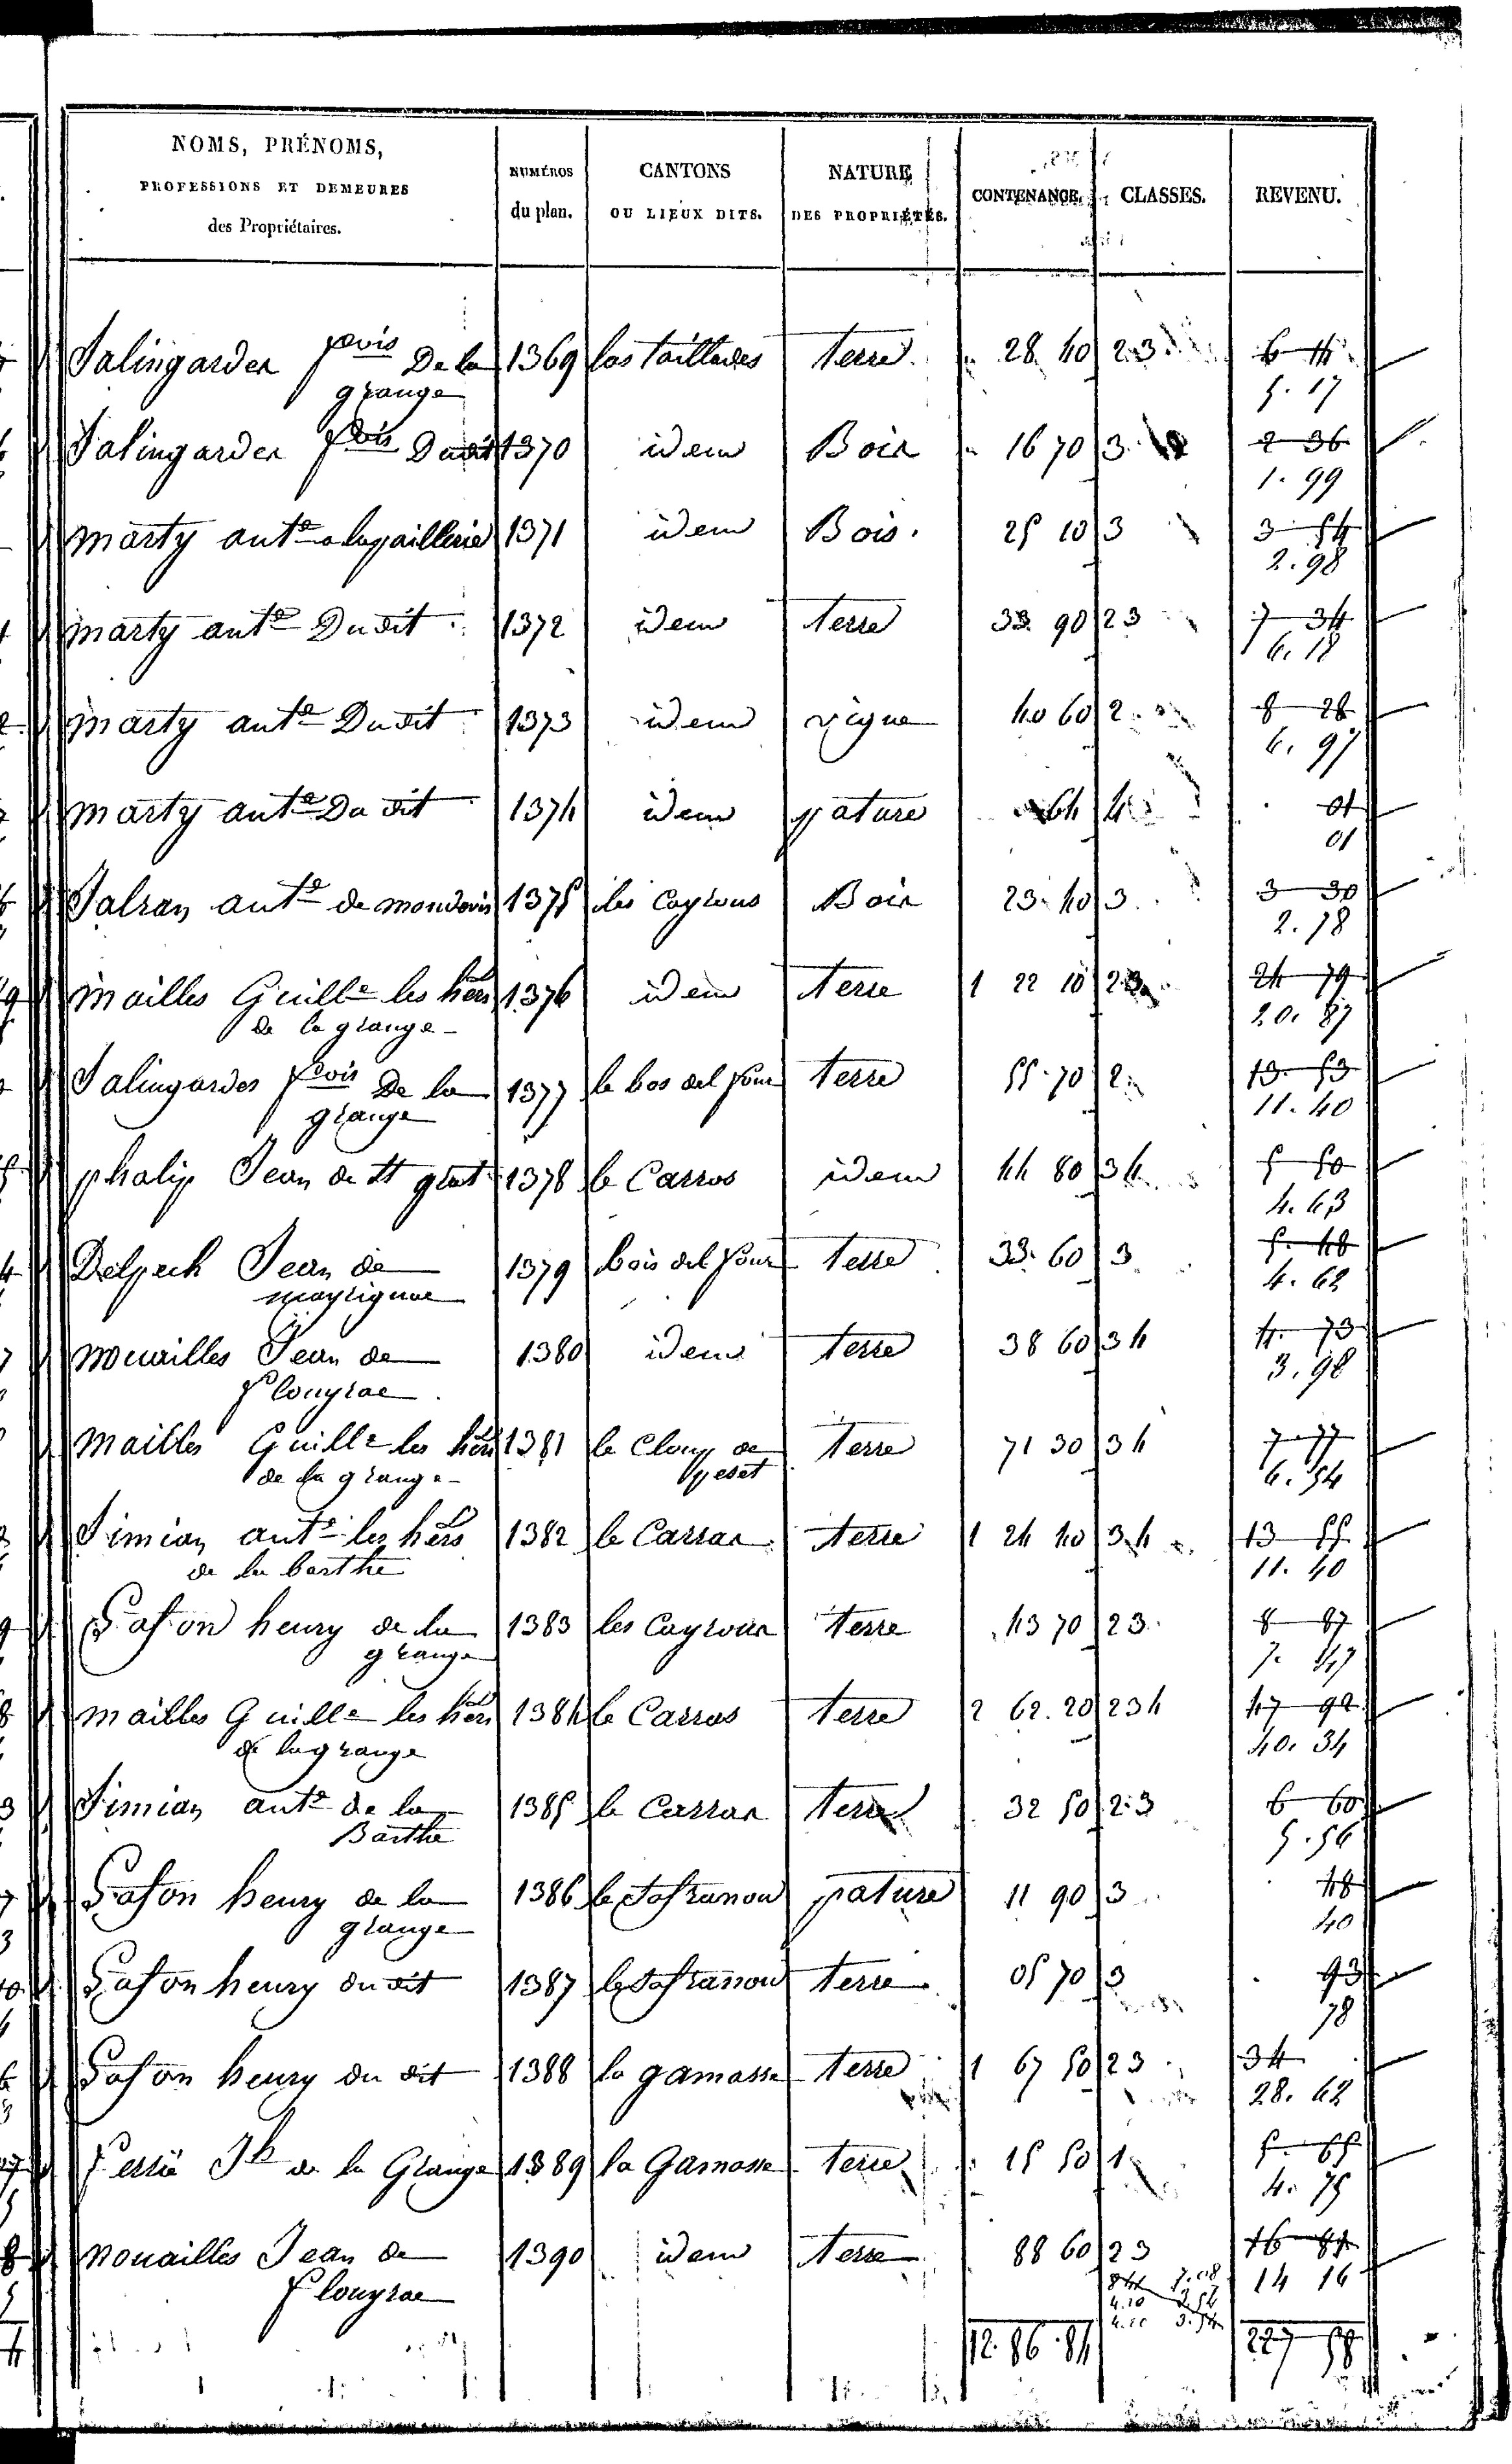 NOMS, PRÉNOMS,
PROFESSIONS ET DEMEURES
des Propriétaires.
NUMÉROS
du plan.
CANTONS
OU LIEUX DITS.
NATURE
DES PROPRIÉTÉS.
CONTENANCE.
CLASSES.
REVENU.
Salingardes fçois De la 1369 las taillades terre 28 40 2.3 6 11
grange 5.17
Salingardes fçois Dudit 1370 idem Bois 16 70 3 2 36
1.99
marty ante a lapaillerie 1371 idem Bois. 25 10 3 3 54
2.98
marty ante Dudit 1372 idem terre 33 90 2 3 7 34
6.18
marty ante Dudit 1373 idem vigne 40 60 2 8 28
6.97
marty ante Du dit 1374 idem pature 64 4 01
01
Jalran ante de mondovis 1375 les Cayrous Bois 23 40 3 3 30
2.78
mailles Guille les hérs 1376 idem terre 1 22 10 2 3 24 79
de la grange 20.87
Salingardes fçois De la 1377 le bos del four terre 55 70 2 13 53
grange 11.40
phalip Jean de St grat 1378 le Carros idem 44 80 3 4 5 50
4.63
Delpech Jean de 1379 bois del four terre 33 60 3 5 48
mayrignac 4.62
nouailles Jean de 1380 idem terre 38 60 3 4 4 73
flouyrac 3.98
mailles Guille les hérs 1381 le Cloup de terre 71 30 3 4 7 77
de la grange peset 6.54
Simian ante les hérs 1382 le Carras terre 1 24 40 3.4 13 55
de la barthe 11.40
Lafon henry de la 1383 les Cayrous terre 43 70 2 3 8 87
grange 7.47
mailles Guille les hérs 1384 le Carros terre 2 62.20 2 3 4 47 92
de la grange 40.34
Simian ante de la 1385 le Carras terre 32 50 2.3 6 60
Barthe 5.56
Lafon henry de la 1386 le Safranou pature 11 90 3 48
grange 40
Lafon henry du dit 1387 le Safranou terre 05 70 3 93
78
Lafon henry du dit 1388 la gamasse terre 1 67 50 2 3 34
28.62
Jh de la Grange 1389 la Gamasse terre 15 50 1 5 65
4.75
nouailles Jean de 1390 idem terre 88 60 2 3 16 81
flouyrac 14 16
7.08
4.20 3.54
4.20 3.54
12.86.84 227 58